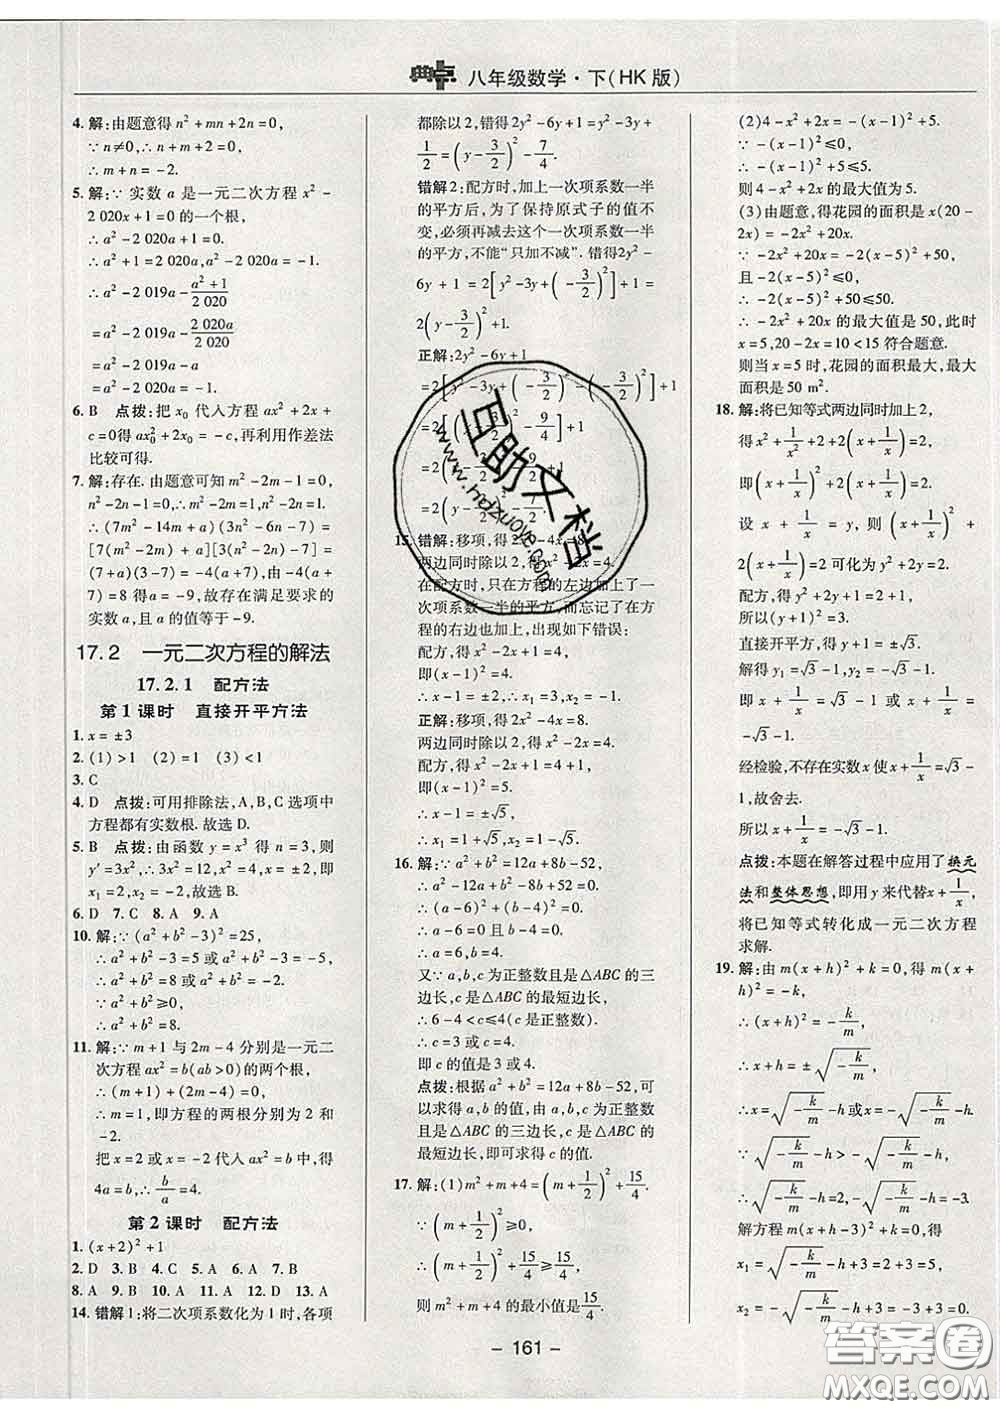 典点 八年级数学·下(HK版)
4. 解:由题意得n²+mn+2n=0,
∵n≠0,∴n+m+2=0,
∴m+n=-2.
5. 解:∵实数a是一元二次方程x²-
2 020x+1=0的一个根,
∴a²-2 020a+1=0.
∴a²+1=2 020a,a²-2 020a=-1.
∴a²-2 019a-(a²+1)/2 020
=a²-2 019a-2 020a/2 020
=a²-2 019a-a
=a²-2 020a=-1.
6. B 点拨:把x₀代入方程ax²+2x+
c=0得ax₀²+2x₀=-c,再利用作差法
比较可得.
7. 解:存在.由题意可知m²-2m-1=0,
n²-2n-1=0,∴m²-2m=1,n²-2n=1.
∴(7m²-14m+a)(3n²-6n-7)=
[7(m²-2m)+a][3(n²-2n)-7]=
(7+a)(3-7)=-4(a+7),由-4(a
+7)=8得a=-9,故存在满足要求的
实数a,且a的值等于-9.
17.2 一元二次方程的解法
17.2.1 配方法
第1课时 直接开平方法
1. x=±3
2. (1)>1 (2)1 (3)<1
3. C
4. D 点拨:可用排除法,A,B,C选项中
方程都有实数根.故选D.
5. B 点拨:由函数y=x³得n=3,则
y′=3x²,∴3x²=12,x²=4,即x₁=2,
x₂=-2,故选B.
6. D 7. C 8. A 9. A
10. 解:∵(a²+b²-3)²=25,
∴a²+b²-3=5或a²+b²-3=-5.
∴a²+b²=8或a²+b²=-2.
∵a²+b²≥0,
∴a²+b²=8.
11. 解:∵m+1与2m-4分别是一元二
次方程ax²=b(ab>0)的两个根,
∴(m+1)+(2m-4)=0,
∴m=1,即方程的两根分别为2和
-2.
把x=2或x=-2代入ax²=b中,得
4a=b,∴b/a=4.
第2课时 配方法
1. (x+2)²+1
2. D 3. B 4. C 5. B 6. A 7. B
8. A 9. B 10. B 11. A 12. A 13. A
14. 错解1:将二次项系数化为1时,各项
都除以2,错得2y²-6y+1=y²-3y+
1/2=(y-3/2)²-7/4.
错解2:配方时,加上一次项系数一半
的平方后,为了保持原式子的值不
变,必须再减去这个一次项系数一半
的平方,不能“只加不减”.错得2y²-
6y+1=2[y²-3y+(-3/2)²]+1=
2(y-3/2)²+1.
正解:2y²-6y+1
=2[y²-3y+(-3/2)²-(-3/2)²]+1
=2[(y-3/2)²-9/4]+1
15. 错解:移项,得2x²-4x=8.
两边同时除以2,得x²-2x=4.
在配方时,只在方程的左边加上了一
次项系数一半的平方,而忘记了在方
程的右边也加上,出现如下错误:
配方,得x²-2x+1=4,
即(x-1)²=4.
∴x-1=±2,∴x₁=3,x₂=-1.
正解:移项,得2x²-4x=8.
两边同时除以2,得x²-2x=4.
配方,得x²-2x+1=4+1,
即(x-1)²=5.
∴x-1=±√5,
∴x₁=1+√5,x₂=1-√5.
16. 解:∵a²+b²=12a+8b-52,
∴a²-12a+b²-8b+52=0.
∴(a-6)²+(b-4)²=0.
∴a-6=0,b-4=0.
∴a=6,b=4.
又∵a,b,c为正整数且是△ABC的三
边长,c是△ABC的最短边长,
∴6-4<c≤4(c是正整数).
∴c=3或c=4.
即c的值是3或4.
点拨:根据a²+b²=12a+8b-52,可
以求得a,b的值,由a,b,c为正整数
且是△ABC的三边长,c是△ABC的
最短边长,即可求得c的值.
17. 解:(1)m²+m+4=(m+1/2)²+15/4.
∵(m+1/2)²≥0,
∴(m+1/2)²+15/4≥15/4.
则m²+m+4的最小值是15/4.
(2)4-x²+2x=-(x-1)²+5.
∵-(x-1)²≤0,
∴-(x-1)²+5≤5.
则4-x²+2x的最大值为5.
(3)由题意,得花园的面积是x(20-
2x)=-2x²+20x.
∵-2x²+20x=-2(x-5)²+50,
且-2(x-5)²≤0,
∴-2(x-5)²+50≤50.
∴-2x²+20x的最大值是50,此时
x=5,20-2x=10<15符合题意.
则当x=5时,花园的面积最大,最大
面积是50 m².
18. 解:将已知等式两边同时加上2,
得x²+1/x²+2+2(x+1/x)=2,
即(x+1/x)²+2(x+1/x)=2.
设x+1/x=y,则(x+1/x)²+
2(x+1/x)=2可化为y²+2y=2.
配方,得y²+2y+1=2+1,
所以(y+1)²=3.
直接开平方,得y+1=±√3.
解得y₁=√3-1,y₂=-√3-1.
即x+1/x=√3-1或x+1/x=
-√3-1.
经检验,不存在实数x使x+1/x=√3-
1,故舍去.
所以x+1/x=-√3-1.
点拨:本题在解答过程中应用了换元
法和整体思想,即用y来代替x+1/x,
将已知等式转化成一元二次方程
求解.
19. 解:由m(x+h)²+k=0,得m(x+
h)²=-k,
∴(x+h)²=-k/m.
∴x+h=±√(-k/m).
∴x=√(-k/m)-h或x=-√(-k/m)-h.
∵√(-k/m)-h>-√(-k/m)-h,
∴√(-k/m)-h=2,-√(-k/m)-h=-3.
解方程m(x+h-3)²+k=0,得
x₁=√(-k/m)-h+3=2+3=5,
x₂=-√(-k/m)-h+3=-3+3=0.
- 161 -
互助文档
www.hdzuoye.com
答案圈
MXQE.COM